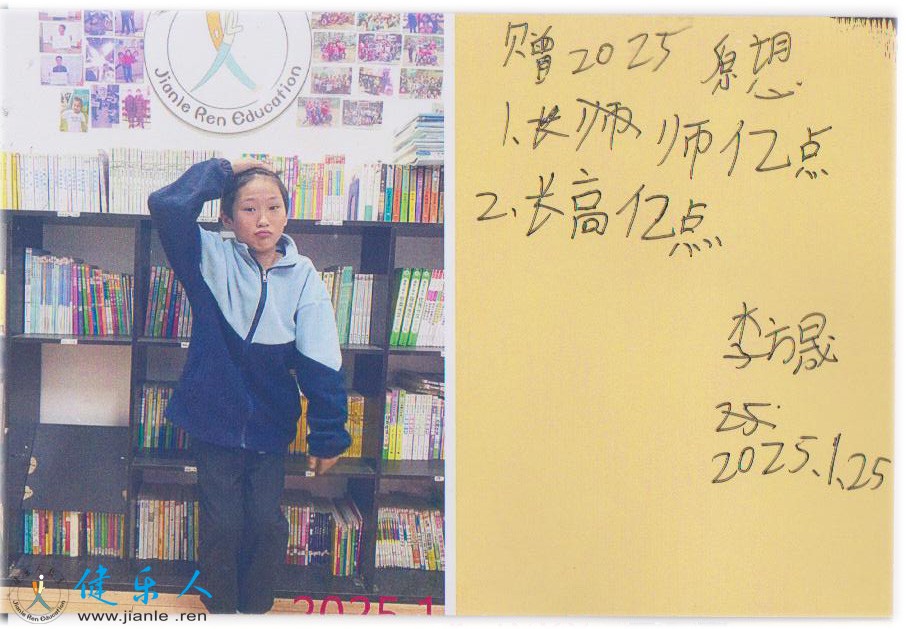 Jianle Ren Education
赠2025 愿想
1.长师 师亿点
2.长高亿点
李方晟
25.
2025.1.25
健乐人
www.jianle .ren
Jianle Ren Education
2025.1